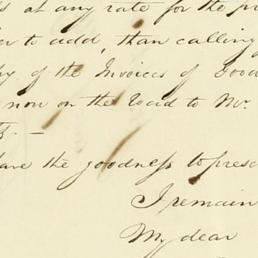 at any rate for the
to add, than calling
of the Invoices of Good
now on the Road to Mr.
the goodness to
I remain
My dear